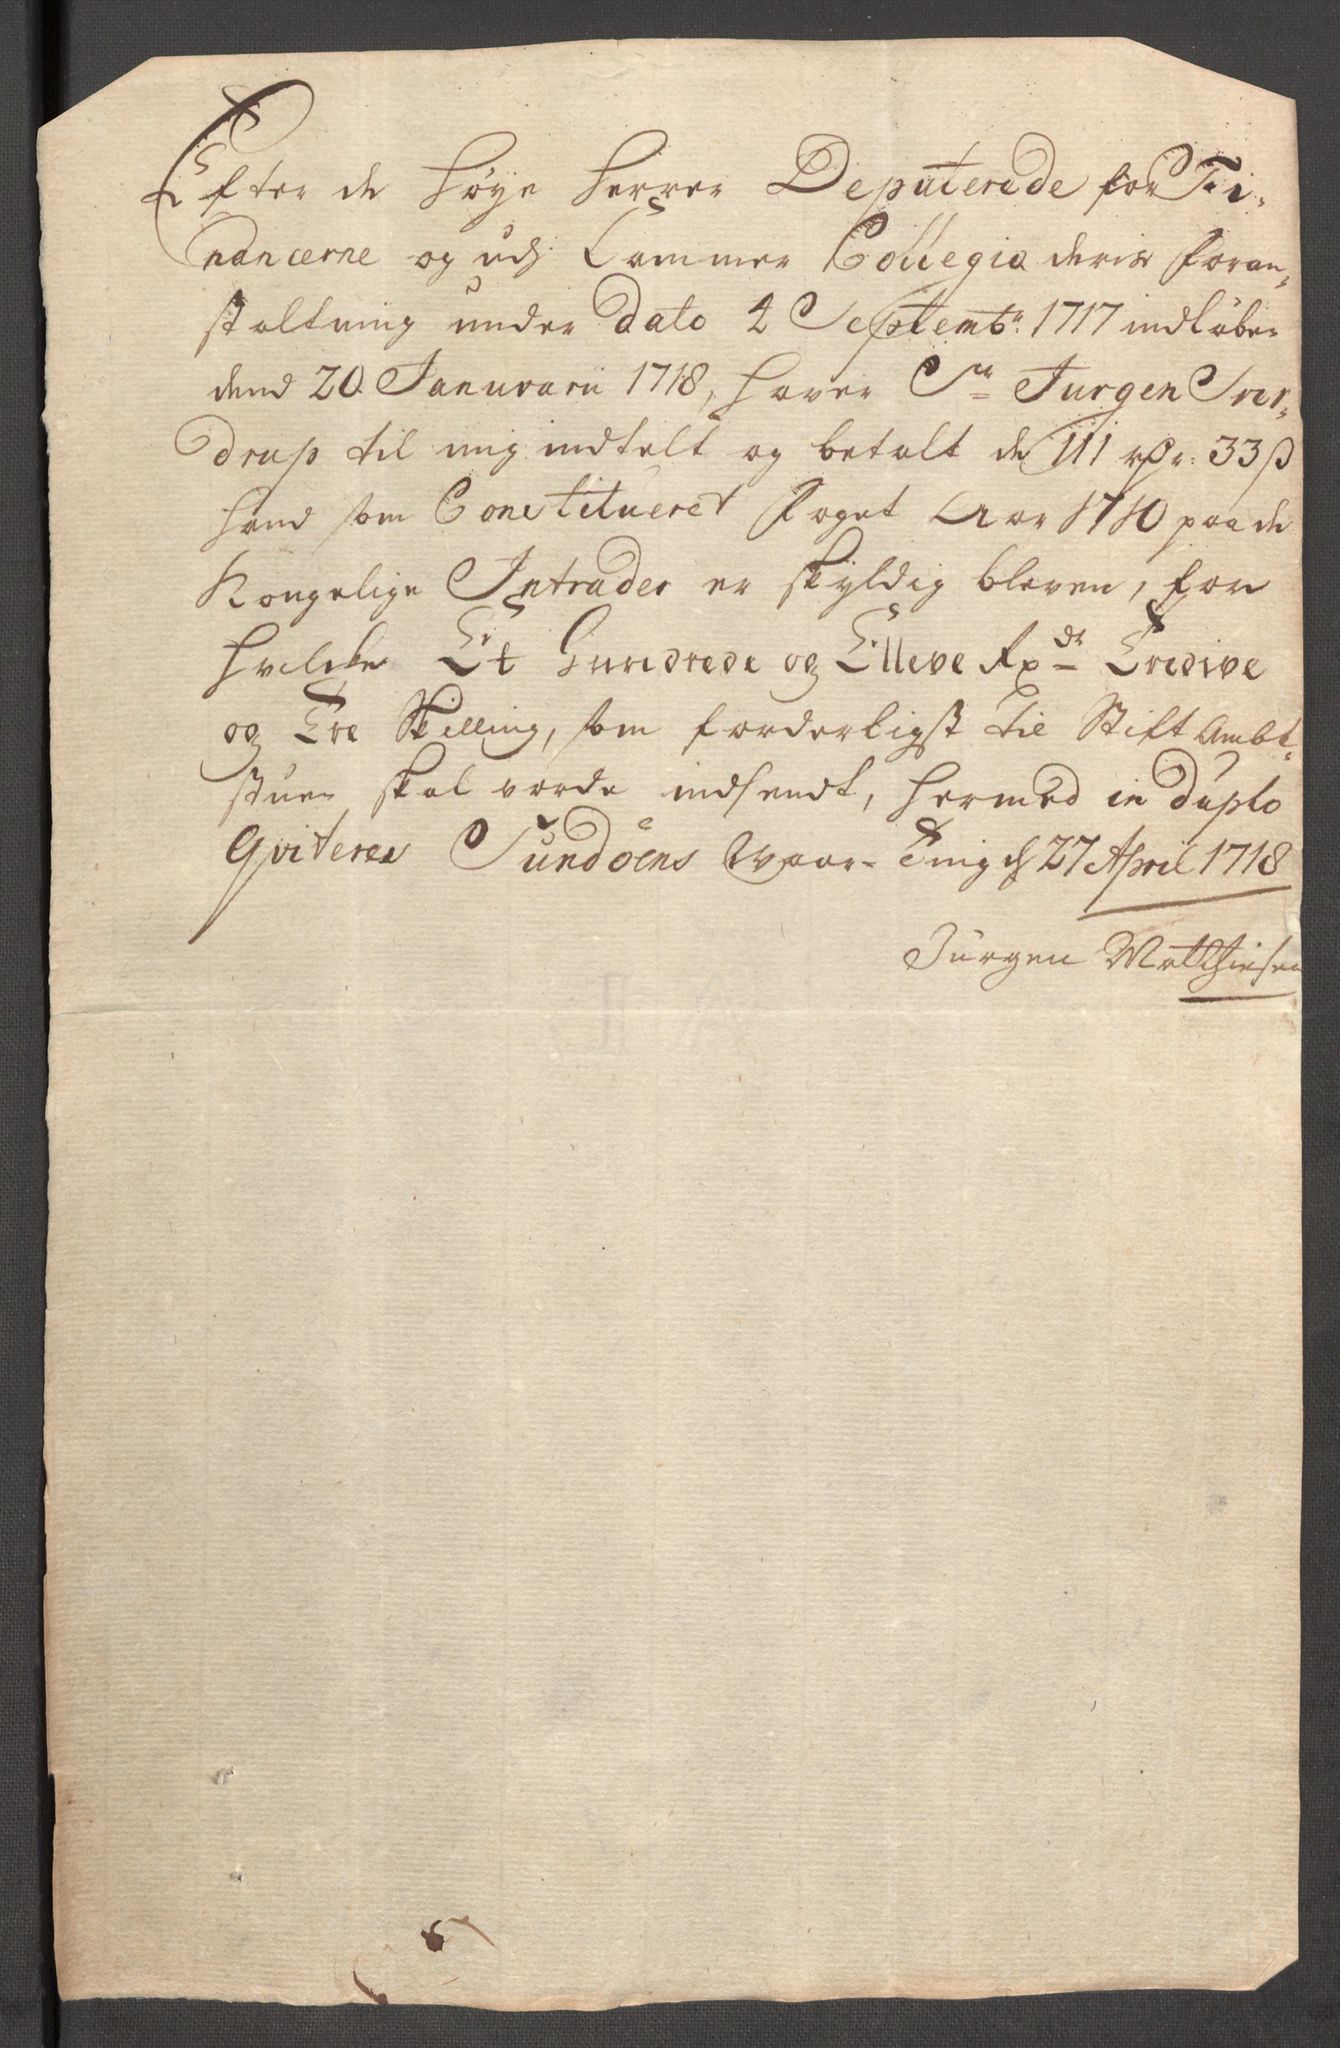 Efter de høye Herrer Deputerede for Fi-
nancerne og udj Cammer Collegio deris Foran-
staltning under Dato 4 Septembr: 1717 indløbe-
dend 20 Januvarii 1718, haver Sr Jurgen Sver-
drup til mig indtelt og betalt de 111 rdr: 33 ß
hand som Constitueret Foget Aar 1710 paa de
Kongelige Intrader er skyldig bleven, for
hvilche Et Hundrede og Elleve Rxdr Tredive
og Tre Skilling, som forderligst til StiftAmbt-
stuen skal vorde indsendt, hermed in Duplo
Qviteres Sundøens Waar-Ting d 27 April 1718
Jürgen Matthiesen